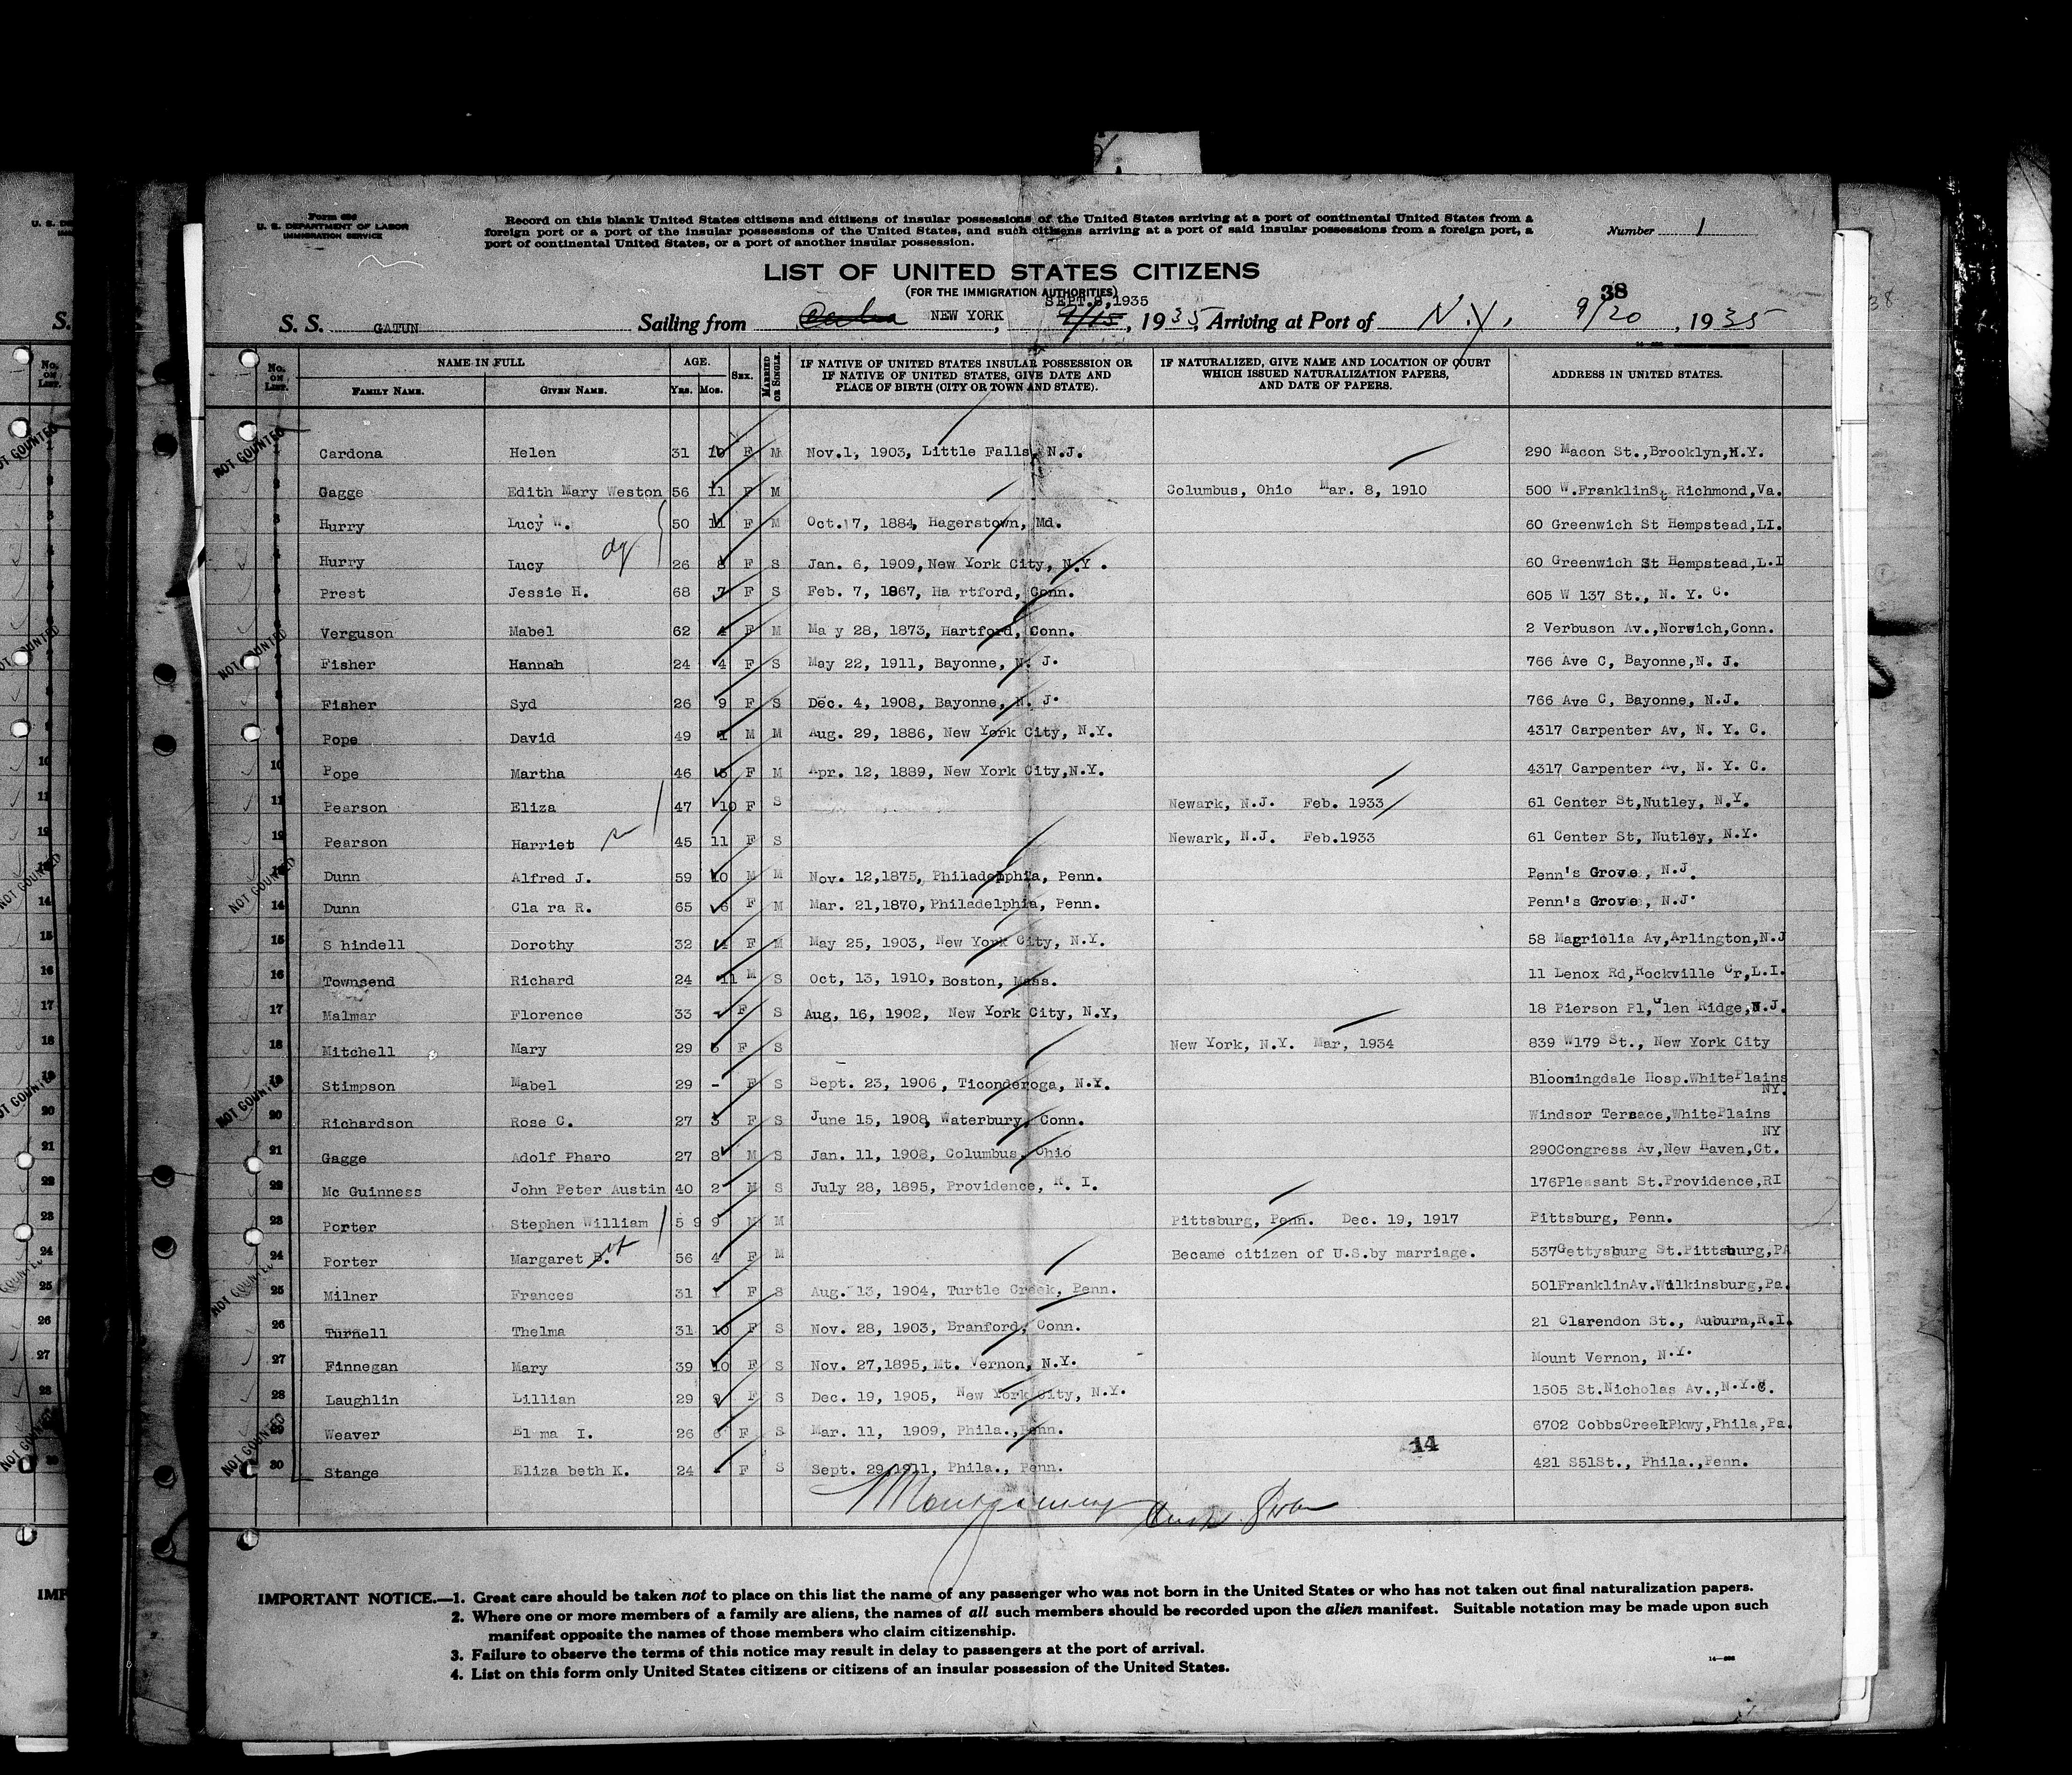 Form 686
U. S. DEPARTMENT OF LABOR
IMMIGRATION SERVICE
Record on this blank United States citizens and citizens of insular possessions of the United States arriving at a port of continental United States from a
foreign port or a port of the insular possessions of the United States, and such citizens arriving at a port of said insular possessions from a foreign port, a
port of continental United States, or a port of another insular possession.
Number 1
LIST OF UNITED STATES CITIZENS
(FOR THE IMMIGRATION AUTHORITIES)
SEPT.8,1935
38
S. S. GATUN Sailing from NEW YORK, 9/15, 1935, Arriving at Port of N.Y., 9/20, 1935
No. ON LIST. NAME IN FULL FAMILY NAME. GIVEN NAME. AGE. Yrs. Mos. SEX. MARRIED OR SINGLE. IF NATIVE OF UNITED STATES INSULAR POSSESSION OR IF NATIVE OF UNITED STATES, GIVE DATE AND PLACE OF BIRTH (CITY OR TOWN AND STATE). IF NATURALIZED, GIVE NAME AND LOCATION OF COURT WHICH ISSUED NATURALIZATION PAPERS, AND DATE OF PAPERS. ADDRESS IN UNITED STATES.
NOT COUNTED
Cardona Helen 31 10 F M Nov.1, 1903, Little Falls, N.J. 290 Macon St.,Brooklyn,N.Y.
2 Gagge Edith Mary Weston 56 11 F M Columbus, Ohio Mar. 8, 1910 500 W.FranklinSt Richmond,Va.
3 Hurry Lucy W. 50 11 F M Oct. 7, 1884, Hagerstown, Md. 60 Greenwich St Hempstead,LI.
4 Hurry Lucy 26 8 F S Jan. 6, 1909,New York City, N.Y . 60 Greenwich St Hempstead,L.I
5 Prest Jessie H. 68 7 F S Feb. 7, 1867, Ha rtford, Conn. 605 W 137 St., N. Y. C.
6 Verguson Mabel 62 4 F M Ma y 28, 1873, Hartford, Conn. 2 Verbuson Av.,Norwich,Conn.
NOT COUNTED
Fisher Hannah 24 4 F S May 22, 1911, Bayonne, N. J. 766 Ave C, Bayonne,N. J.
8 Fisher Syd 26 9 F S Dec. 4, 1908, Bayonne, N. J. 766 Ave C, Bayonne, N.J.
9 Pope David 49 1 M M Aug. 29, 1886, New York City, N.Y. 4317 Carpenter Av, N. Y. C.
10 Pope Martha 46 5 F M Apr. 12, 1889, New York City,N.Y. 4317 Carpenter Av, N. Y. C.
11 Pearson Eliza 47 10 F S Newark, N.J. Feb. 1933 61 Center St,Nutley, N.Y.
12 Pearson Harriet 45 11 F S Newark, N.J. Feb.1933 61 Center St, Nutley, N.Y.
NOT COUNTED
13 Dunn Alfred J. 59 10 M M Nov. 12,1875, Philadelphia, Penn. Penn's Grove, N.J.
14 Dunn Cla ra R. 65 6 F M Mar. 21,1870,Philadelphia, Penn. Penn's Grove, N.J.
15 S hindell Dorothy 32 4 F M May 25, 1903, New York City, N.Y. 58 Magnolia Av,Arlington,N.J
16 Townsend Richard 24 11 M S Oct, 13, 1910, Boston, Mass. 11 Lenox Rd,Rockville Cr,L.I.
17 Malmar Florence 33 - F S Aug, 16, 1902, New York City, N.Y, 18 Pierson Pl,Glen Ridge,N.J.
18 Mitchell Mary 29 6 F S New York, N.Y. Mar, 1934 839 W179 St., New York City
19 Stimpson Mabel 29 - F S Sept. 23, 1906, Ticonderoga, N.Y. Bloomingdale Hosp.WhitePlains NY.
NOT COUNTED
20 Richardson Rose C. 27 3 F S June 15, 1908, Waterbury, Conn. Windsor Terrace,WhitePlains NY
21 Gagge Adolf Pharo 27 8 M S Jan. 11, 1908, Columbus, Ohio 290Congress Av,New Haven,Ct.
22 Mc Guinness John Peter Austin 40 2 M S July 28, 1895, Providence, R. I. 176Pleasant St.Providence,RI
23 Porter Stephen William 5 9 9 M M Pittsburg, Penn. Dec. 19, 1917 Pittsburg, Penn.
24 Porter Margaret B. 56 4 F M Became citizen of U.S.by marriage. 537Gettysburg St.Pittsburg,PA
NOT COUNTED
25 Milner Frances 31 1 F S Aug. 13, 1904, Turtle Creek, Penn. 501FranklinAv.Wilkinsburg,Pa.
26 Turnell Thelma 31 10 F S Nov. 28, 1903, Branford, Conn. 21 Clarendon St., Auburn,R.I.
27 Finnegan Mary 39 10 F S Nov. 27,1895, Mt. Vernon, N.Y. Mount Vernon, N.Y.
28 Laughlin Lillian 29 9 F S Dec. 19, 1905, New York City, N.Y. 1505 St.Nicholas Av.,N.Y.C.
29 Weaver El ma I. 26 6 F S Mar. 11, 1909, Phila.,Penn. 6702 CobbsCreekPkwy,Phila,Pa.
NOT COUNTED
14
30 Stange Eliza beth K. 24 - F S Sept. 29,1911, Phila., Penn. 421 S51St., Phila.,Penn.
Montgomery
IMPORTANT NOTICE.—1. Great care should be taken not to place on this list the name of any passenger who was not born in the United States or who has not taken out final naturalization papers.
2. Where one or more members of a family are aliens, the names of all such members should be recorded upon the alien manifest. Suitable notation may be made upon such
manifest opposite the names of those members who claim citizenship.
3. Failure to observe the terms of this notice may result in delay to passengers at the port of arrival.
4. List on this form only United States citizens or citizens of an insular possession of the United States.